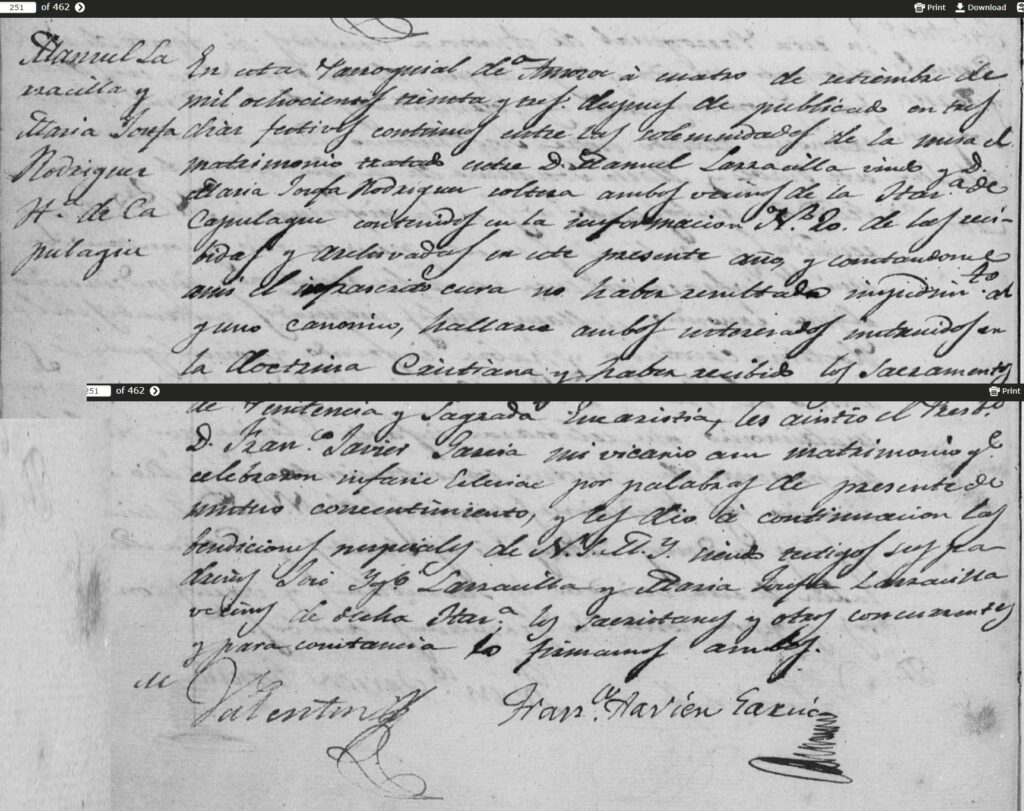 251 of 462 Print Download
Manuel La
rracilla y
Maria Josefa
Rodriguez
H.a de Ca
pulaque
En esta Parroquial de a quatro de setiembre de
mil ochocientos treinta y tres, despues de publicado en tres
dias festivos continuos entre las solemnidades de la misa el
matrimonio tratado entre D. Manuel Larracilla viudo y D.a
Maria Josefa Rodriguez soltera ambos vecinos de la Hac.a de
Capulaque contenidos en la informacion N. 20. de las reci-
bidas y archivadas en este presente año, y constandome
ami el infrascrito cura no haber resultado impedim.to al
guno canonico, hallarse ambos instruidos en
la Doctrina Cristiana y haber recibido los Sacramentos
251 of 462 Print
de Penitencia y Sagrada Eucaristia, les asistio el Presb.o
D. Fran.co Javier Garcia mi vicario a su matrimonio q.e
celebraron infacie Eclesiae por palabras de presente de
mutuo consentimiento, y les dio a continuacion las
bendiciones nupciales de N. S. M. Y. siendo testigos sus pa
drinos José Larracilla y Maria Josefa Larracilla
vecinos de dicha Hac.a los sacristanes y otros concurrentes
y para constancia lo firmamos ambos.
Fran.co Xavier Garcia